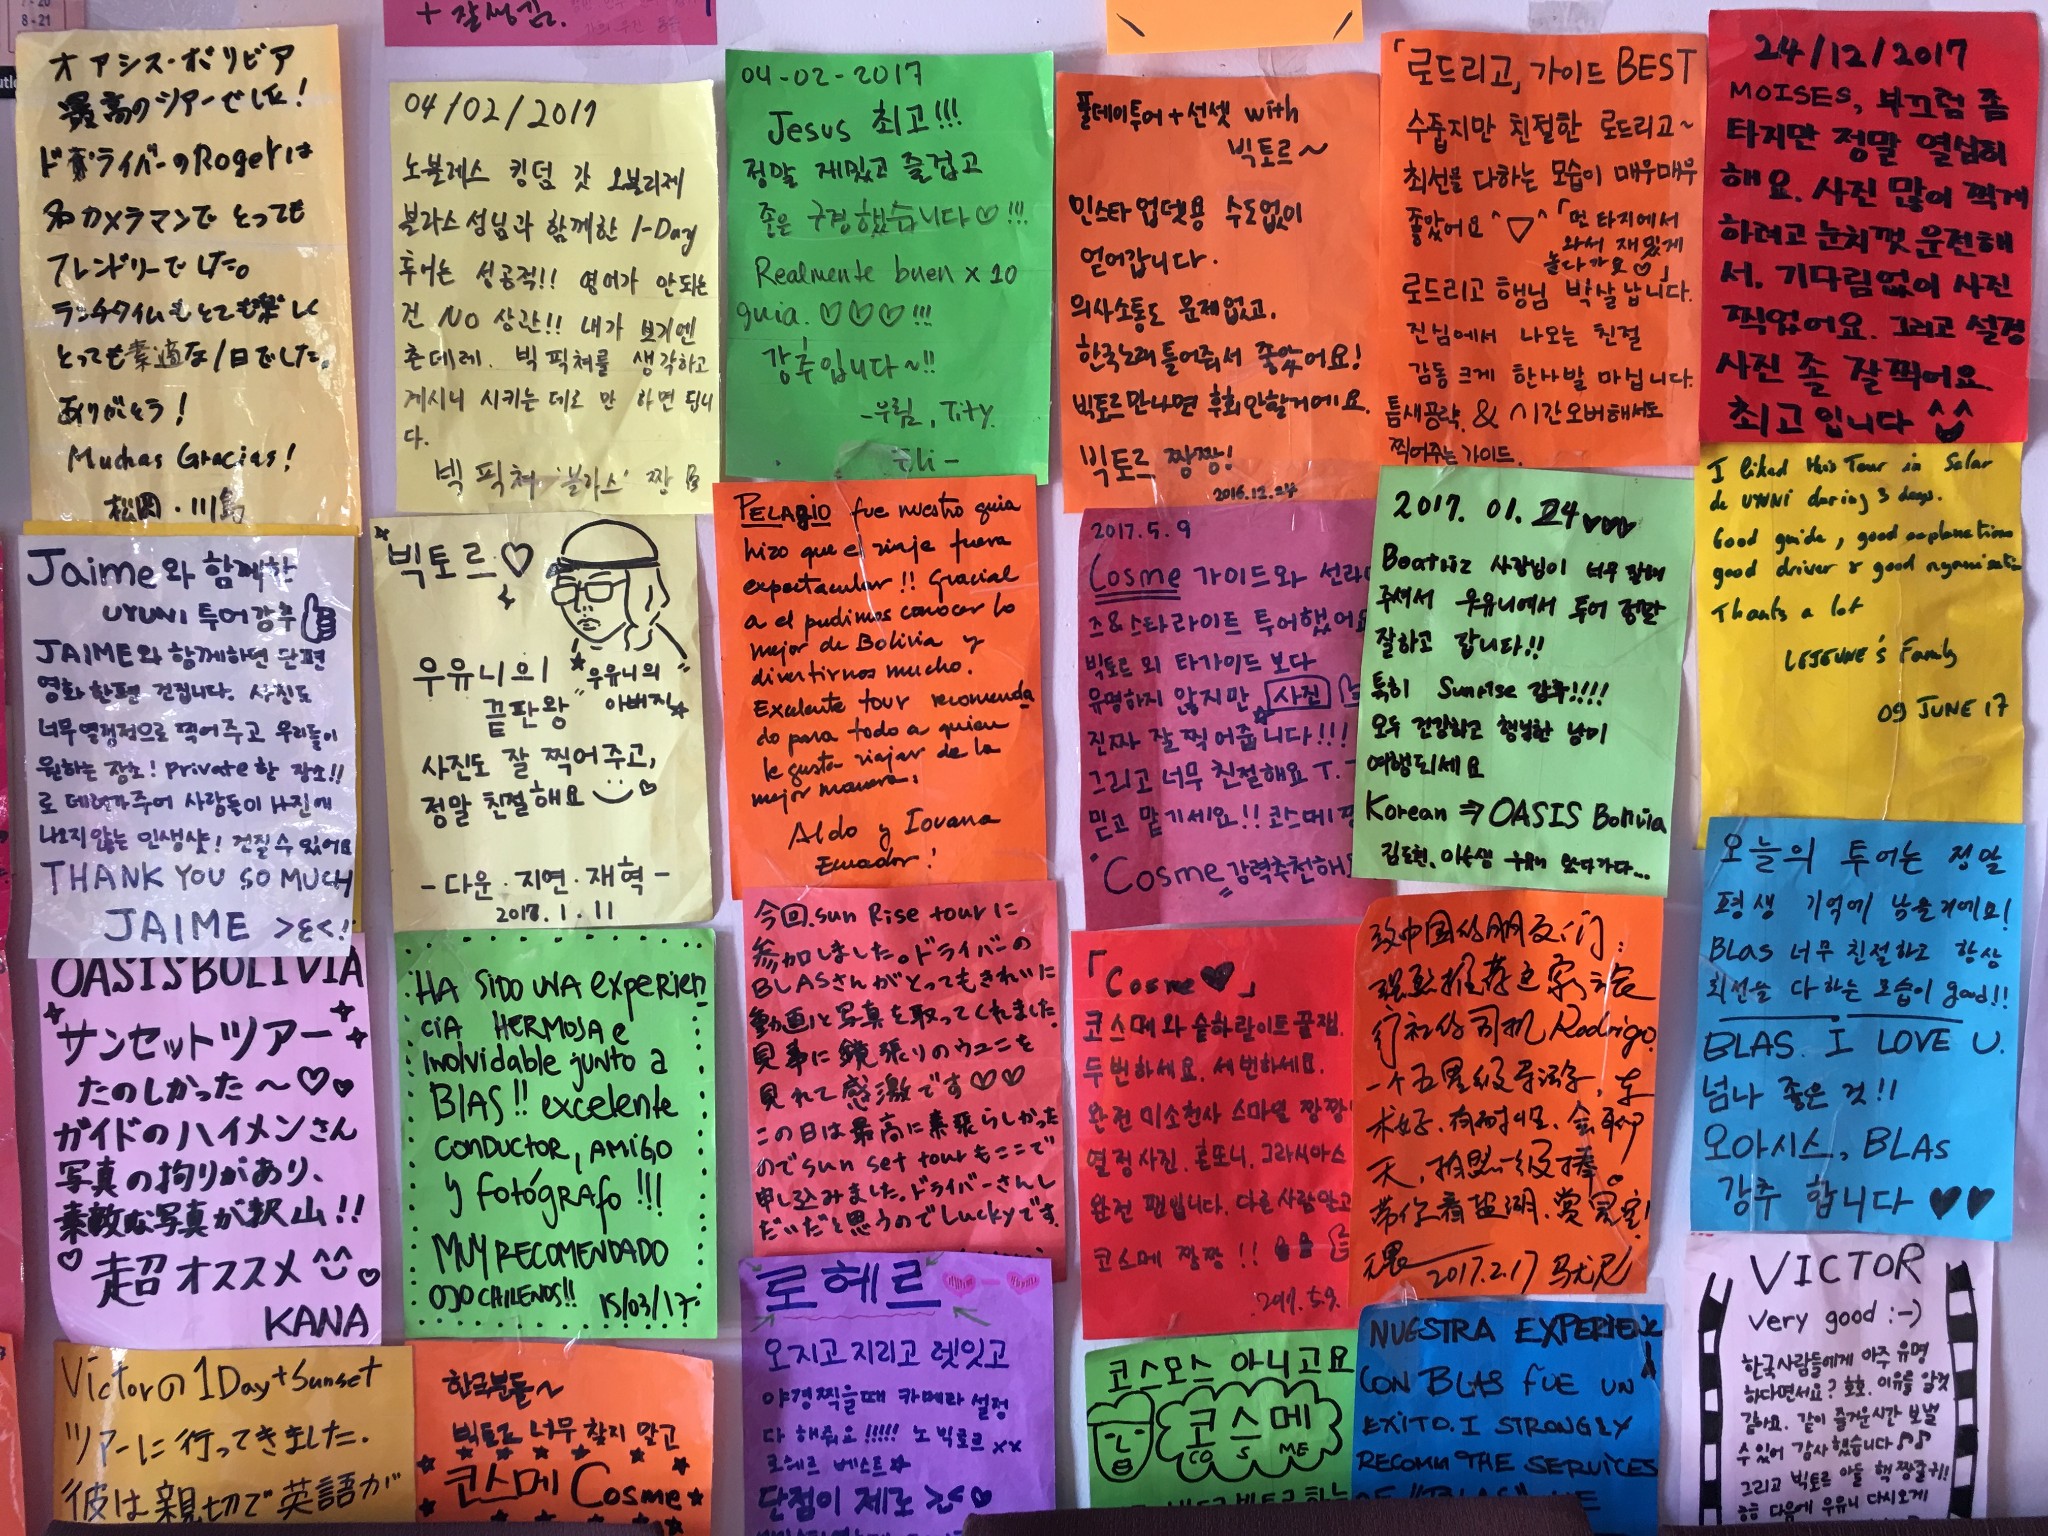 7-20
8-21
+ 잘생김.
オアシス・ボリビア
最高のツアーでした!
ドライバーのRogerは
名カメラマンで とっても
フレンドリーでした。
ランチタイムもとても楽しく
とっても素適な1日でした。
ありがとう!
Muchas Gracias!
松岡・川島
Jaime와 함께한
UYUNI 투어강추
JAIME와 함께하면 단편
영화 한편 건집니다. 사진도
너무열정적으로 찍어주고 우리들이
원하는 장소! private한 장소!!
로 데려가주어 사람들이 사진에
나오지않는 인생샷! 건질수있어요
THANK YOU SO MUCH
JAIME >ε<!!
OASIS BOLIVIA
サンセットツアー
たのしかった〜♡♡
ガイドのハイメンさん
写真の拘りがあり、
素敵な写真が沢山!!
超オススメ ^^
KANA
Victorの1Day+Sunset
ツアーに行ってきました.
彼は親切で英語が
04/02/2017
노블레스 킹덤 갓 오블리제
블라스성님과 함께한 1-Day
투어는 성공적!! 영어가 안되는
건 NO 상관!! 내가 보기엔
츤데레. 빅픽쳐를 생각하고
계시니 시키는데로 만 하면 됩니
다.
빅 픽쳐 '블라스' 짱
빅토르♡
우유니의
끝판왕
"우유니의
아버지"
사진도 잘 찍어주고,
정말 친절해요
- 다운·지연·재혁 -
2017.1.11
HA SIDO UNA experien
cia HERMOSA e
inolvidable junto a
BlAS!! excelente
conductor, AMIGO
y fotógrafo!!!
MUY RECOMENDADO
OJO CHILENOS!! 15/03/17
한국분들~
빅토르 너무 찾지 말고
코스메 Cosme
04-02-2017
Jesus 최고!!!
정말 재밌고 즐겁고
좋은 구경했습니다♡!!!
Realmente buen x 10
guia. ♡♡♡!!!
강추입니다~!!
-우림, Tity.
PELAGIO fue nuestro guia
hizo que el viaje fuera
espectacular!! Gracias
a el pudimos conocer lo
mejor de Bolivia y
divertirnos mucho.
Excelente tour recomenda
do para todo a quien
le gusta viajar de la
mejor manera.
Aldo y Iovana
Ecuador!
今回、sun Rise tourに
参加しました。ドライバーの
BLASさんがとってもきれいに
動画と写真を取ってくれました.
見事に鏡張りのウユニを
見れて感激です♡♡
この日は最高に素張らしかった
のでsun set tourもここで
申し込みました。ドライバーさんし
だいだと思うのでLuckyです.
로헤르
오지고지리고 렛잇고
야경찍을때 카메라 설정
다 해줘요!!!!! 노 빅토르 xx
로헤르 베스트☆
단점이 제로 >.<♡
풀데이투어+선셋 with
빅토르~
인스타 업뎃용 수도없이
얻어갑니다.
의사소통도 문제없고.
한국노래 틀어줘서 좋았어요!
빅토르만나면 후회안할거에요.
빅토르 짱짱!
2016.12.24
2017.5.9
Cosme 가이드와 선라이
즈&스타라이트 투어했어요
빅토르 외 타가이드 보다
유명하지 않지만 사진
진짜 잘찍어줍니다!!!
그리고 너무 친절해요 T.T
믿고 맡기세요!! 코스메 짱
Cosme 강력추천해요
「Cosme♥」
코스메와 솔라라이트 꿀잼.
두번하세요. 세번하세요.
완전 미소천사 스마일 짱짱!
열정사진. 혼또니. 그라시아스
완전 팬입니다. 다른사람말고
코스메 짱짱!!
2017.5.9.
코스모스 아니고요
코스메
CO S ME
「로드리고, 가이드 BEST
수줍지만 친절한 로드리고~
최선을 다하는 모습이 매우매우
좋았어요 ^▽^
「먼 타지에서
와서 재밌게
놀다가요♡」
로드리고 행님 박살납니다.
진님에서 나오는 친절
감동 크게 한사발 마십니다.
틈새공략. & 시간오버해서도
찍어주는 가이드.
2017. 01. 24 ♥♥♥
Beatriz 사장님이 너무 잘해
주셔서 우유니에서 투어 정말
잘하고 갑니다!!
특히 Sunrise 강추!!!!
모두 건강하고 행복한 남미
여행되세요
Korean ⇒ OASIS Bolivia
致中国的朋友们:
强烈推荐这家旅
行社的司机Rodrigo.
一个五星级导游, 车
术好, 有耐心, 会聊
天, 拍照一级棒。
带你看盐湖、赏星空!
2017.2.17
NUESTRA EXPERIENCIA
CON BLAS FUE UN
EXITO. I STRONGLY
RECOMM THE SERVICES
OF "BLAS" WE
24/12/2017
MOISES, 부끄럼 좀
타지만 정말 열심히
해요. 사진 많이 찍게
하려고 눈치껏 운전해
서, 기다림없이 사진
찍었어요. 그리고 설정
사진 좀 잘찍어요
최고입니다
I liked this Tour in Salar
de UYUNI during 3 days.
Good guide, good explanations
good driver & good organisation
Thanks a lot
LEJEUNE's Family
09 JUNE 17
오늘의 투어는 정말
평생 기억에 남을거에요!
BLAS 너무 친절하고 항상
최선을 다하는 모습이 good!!
BLAS. I LOVE U.
넘나 좋은 것!!
오아시스, BLAS
강추 합니다 ♥♥
VICTOR
very good :-)
한국사람들에게 아주 유명
하다면서요? 호호. 이유를 알것
같아요. 같이 즐거운시간 보낼
수 있어 감사했습니다♪♪
그리고 빅토르 아들 핵짱귀!!
다음에 우유니 다시오게